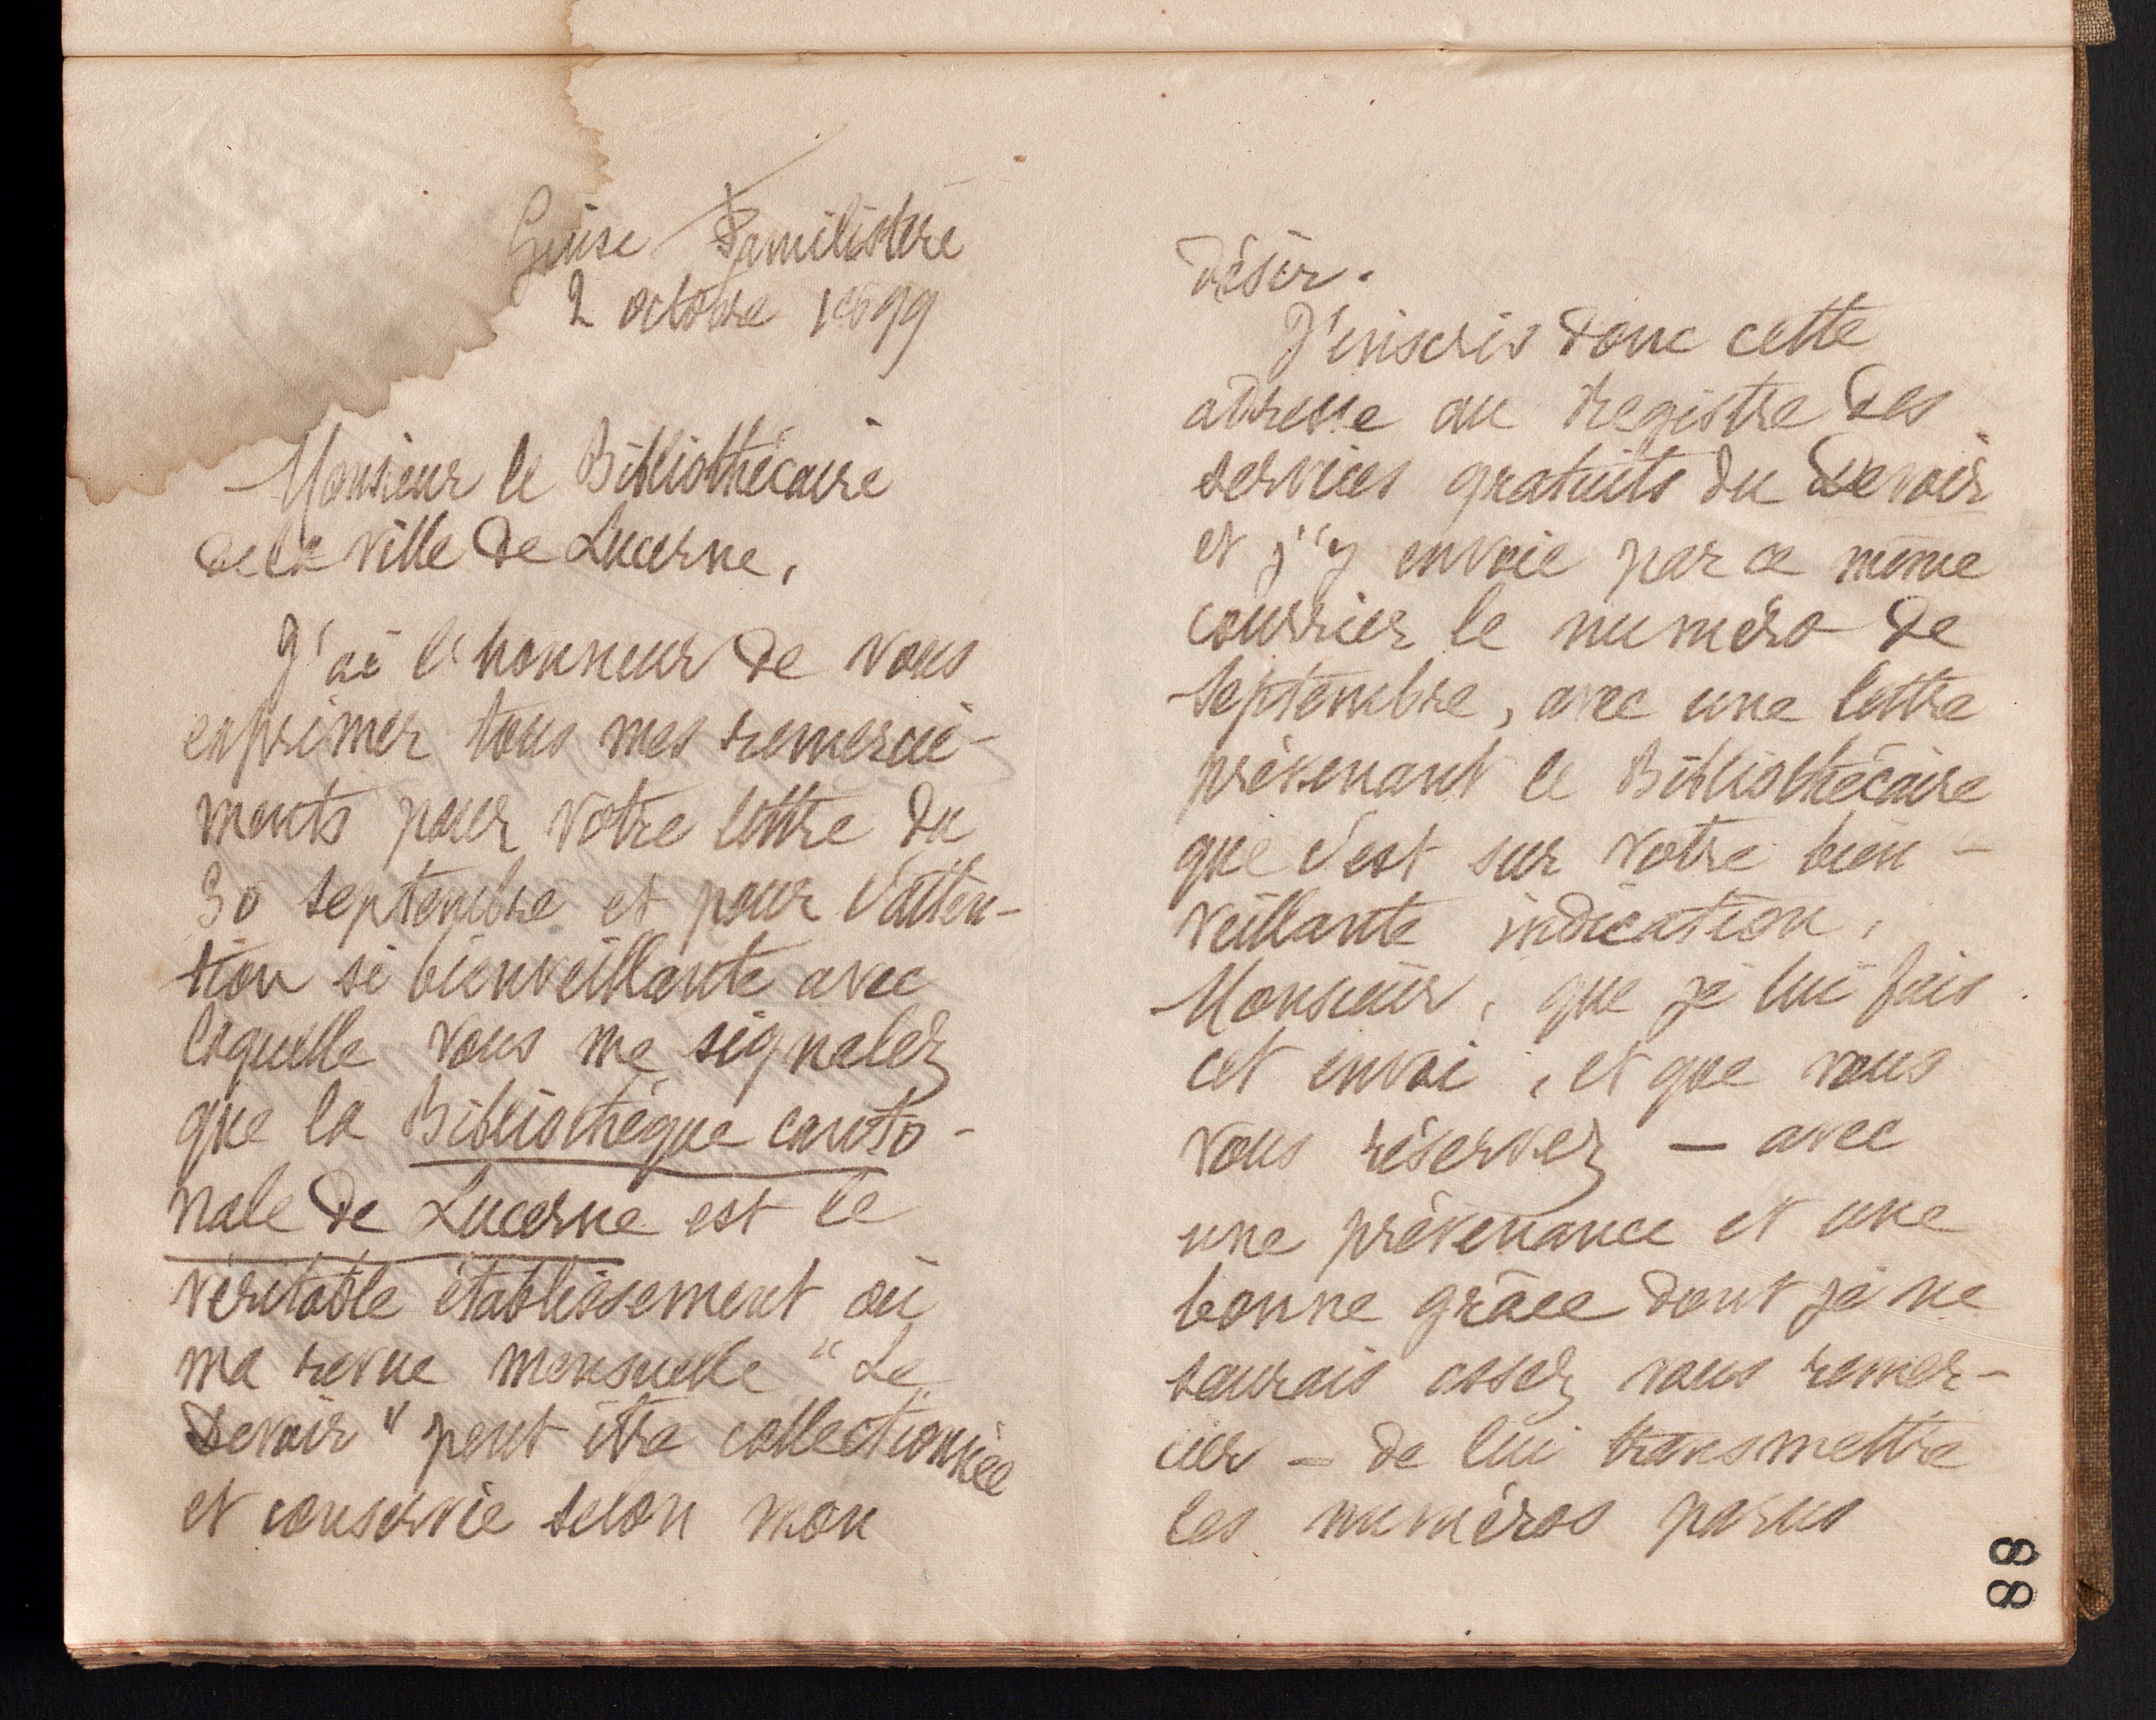 Guise Familistère
2 octobre 1899
Monsieur le Bibliothécaire
de la ville de Lucerne,
J'ai l'honneur de vous
exprimer tous mes remercie-
ments pour votre lettre du
30 septembre et pour l'atten-
tion si bienveillante avec
laquelle vous me signalez
que la Bibliothèque canto-
nale de Lucerne est le
véritable établissement où
ma revue mensuelle "Le
Devoir" peut être collectionnée
et conservée selon mon
désir.
J'inscris donc cette
adresse au registre des
services gratuits du Devoir
et j'y envoie par ce même
courrier le numéro de
septembre, avec une lettre
prévenant le Bibliothécaire
que c'est sur votre bien-
veillante indication,
Monsieur, que je lui fais
cet envoi, et que vous
vous réservez – avec
une prévenance et une
bonne grâce dont je ne
saurais assez vous remer-
cier – de lui transmettre
les numéros parus
88